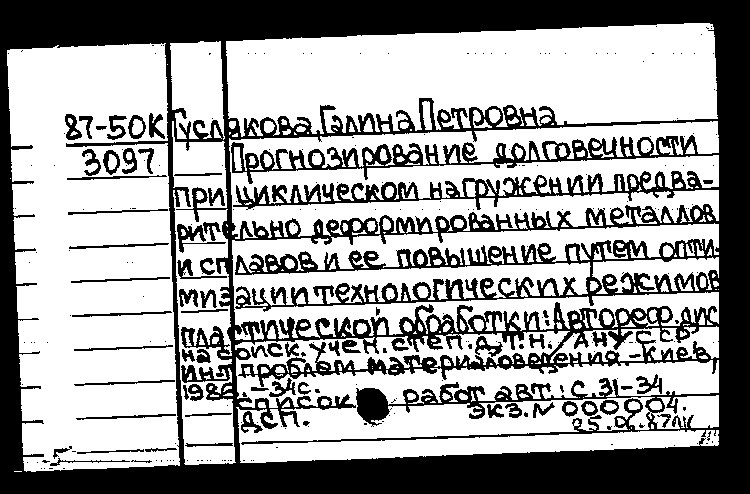 87-50К Гуслякова, Галина Петровна.
3097 Прогнозирование долговечности
при циклическом нагружении предва-
рительно деформированных металлов
и сплавов и ее повышение путем опти-
мизации технологических режимов
пластической обработки: Автореф. дис
на соиск. учен. степ. д.т.н. / АН УССР
Ин-т проблем материаловедения. - Киев,
1986. - 34с.
Список работ авт.: с. 31-34.
ДСП. экз. N 000004.
25.06.87